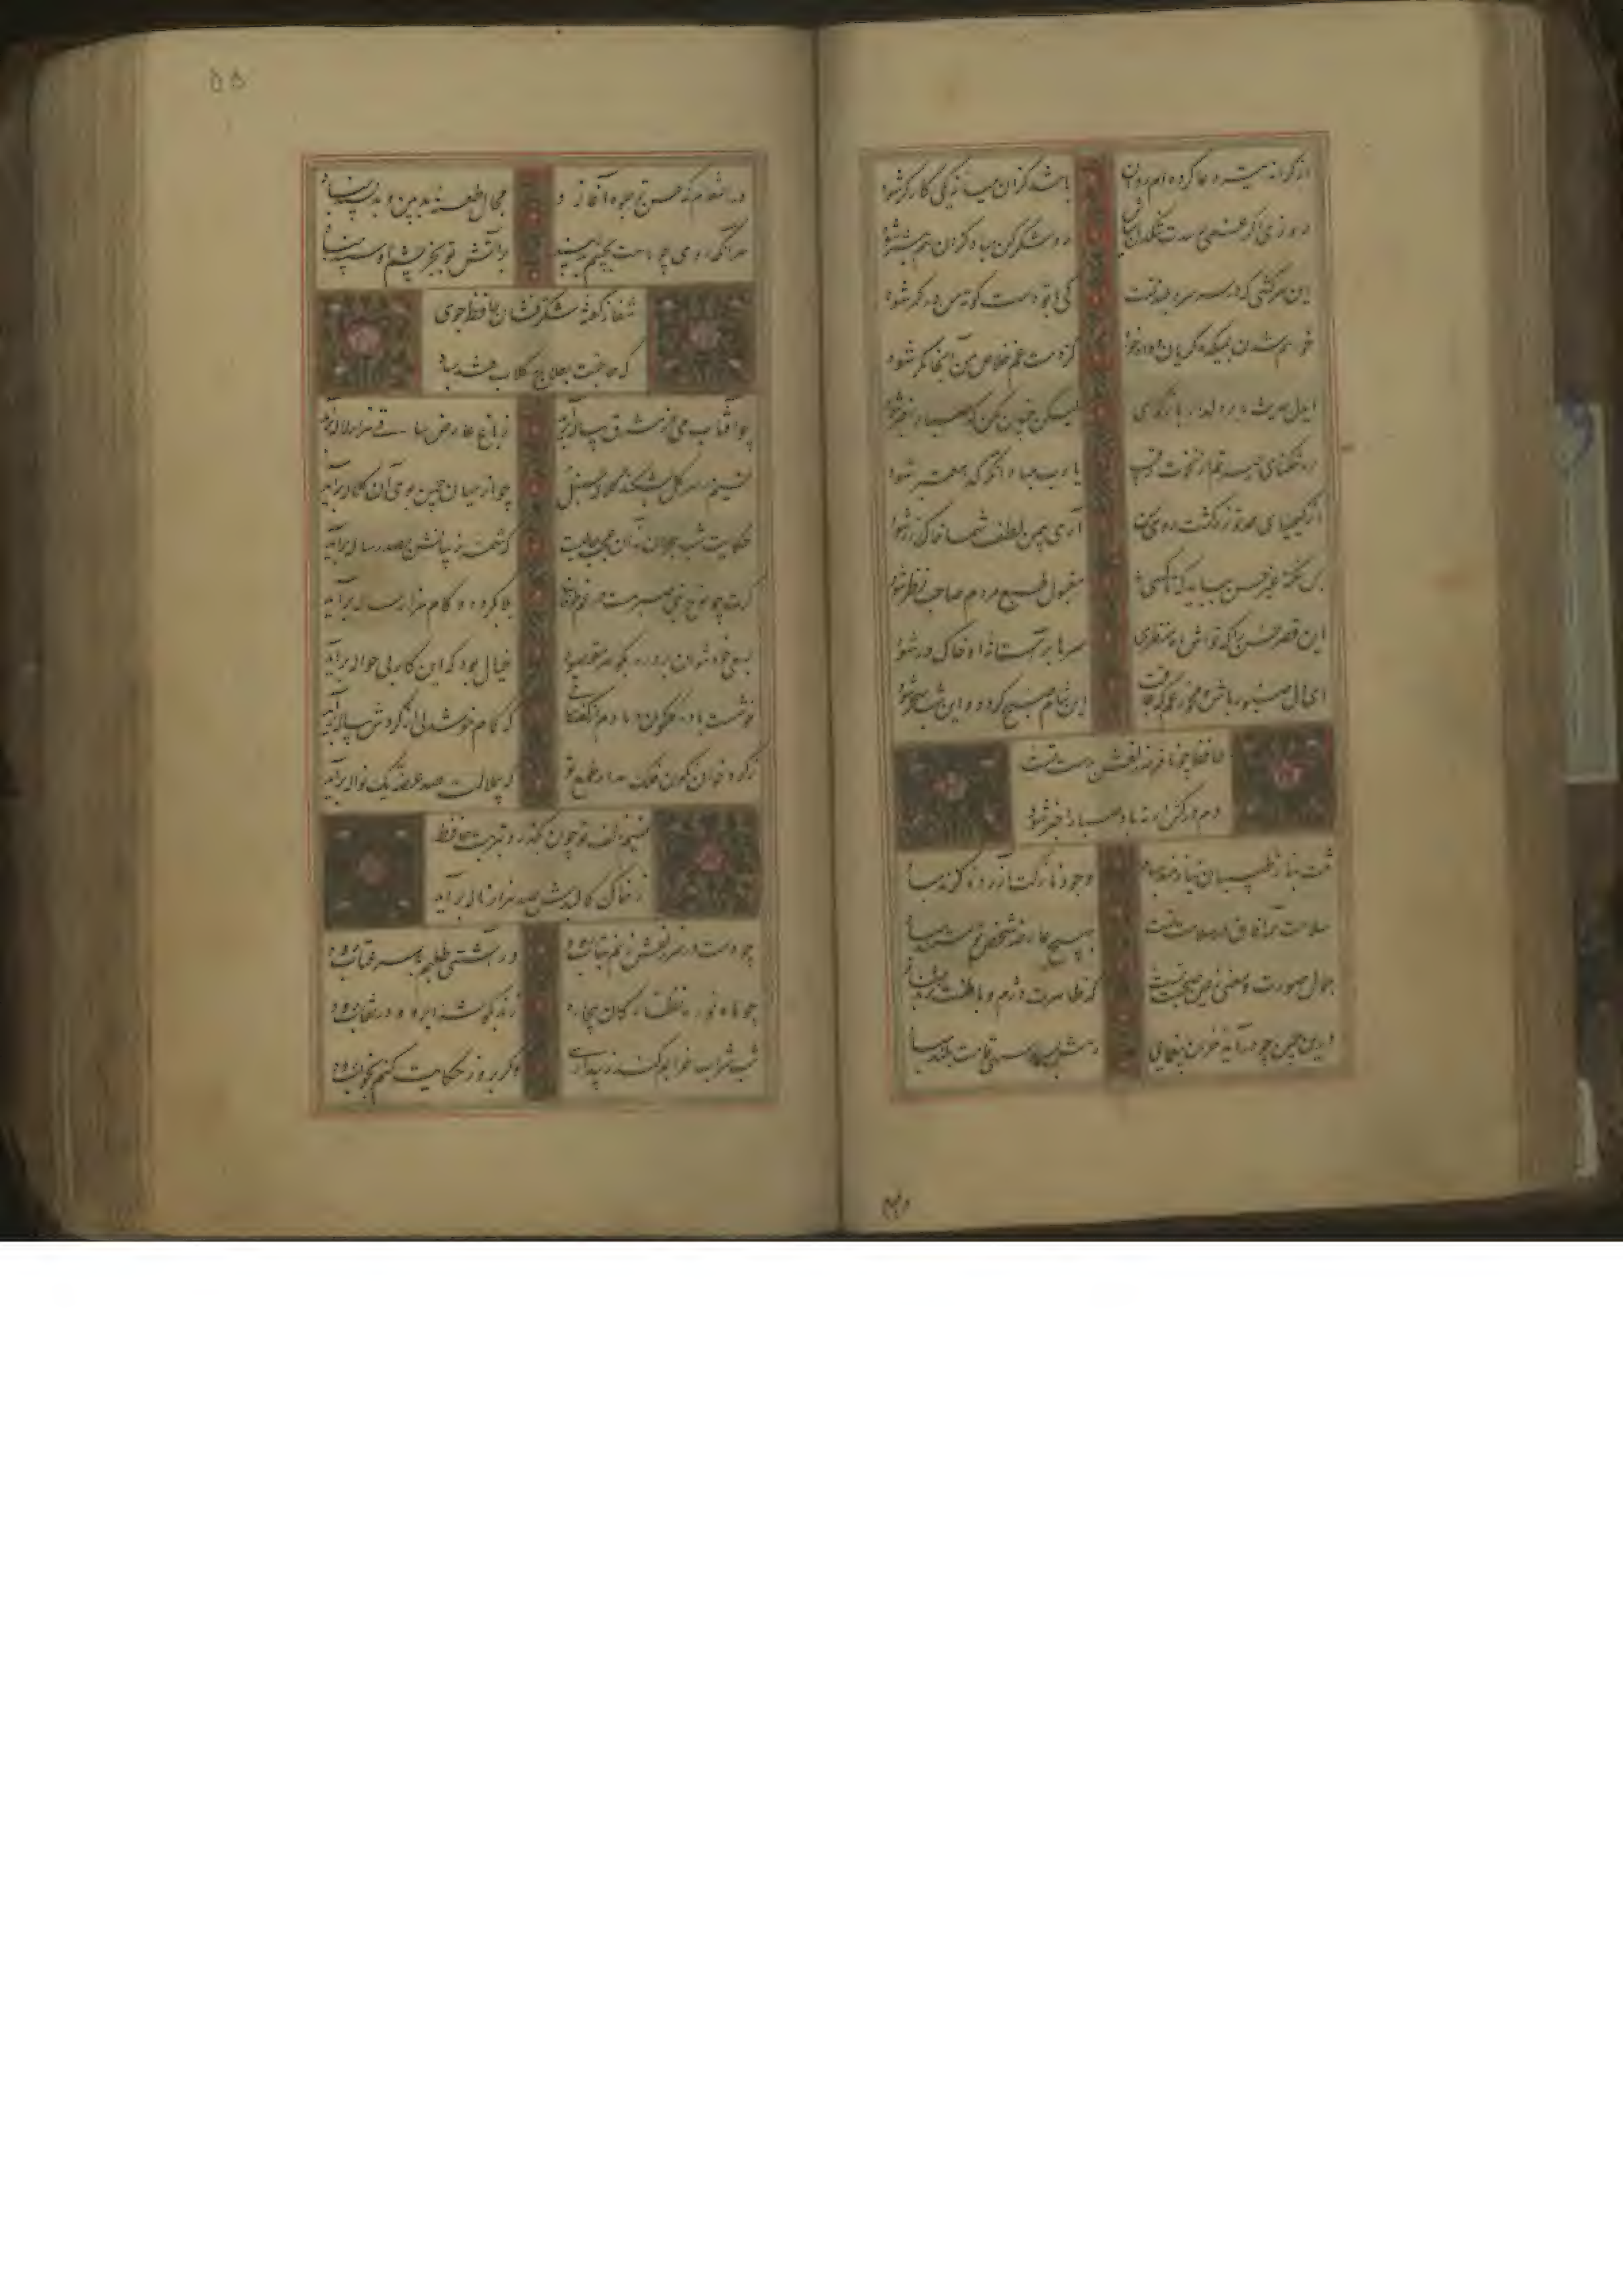 از کرانه تیر دعا کرده‌ام روان باشد کزان میانه یکی کارگر شود
روزی اگر غمی رسدت تنگدل مباش رو شکر کن مباد کزان هم بتر شود
این سرکشی که در سر سرو بلند تست کی با تو دست کوته من در کمر شود
خواهم شدن بمیکده گریان و دادخواه کز دست غم خلاص من آنجا مگر شود
ای دل حدیث ما بر دلدار بازگوی لیکن چنین مگن که صبا را خبر شود
در تنگنای حیرتم از نخوت رقیب یا رب مباد آنکه گدا معتبر شود
از کیمیای مهر تو زر گشت روی من آری بیمن لطف شما خاک زر شود
بس نکته غیر حسن بباید که تا کسی مقبول طبع مردم صاحب نظر شود
این قصر حسن را که تواش ماه منظری سرها بر آستانه او خاک در شود
ای دل صبور باش و مخور غم که عاقبت این شام صبح گردد و این شب سحر شود
حافظ چو نافه سر زلفش بدست تست
دم درکش ار نه باد صبا را خبر شود
تنت بناز طبیبان نیازمند مباد وجود نازکت آزرده گزند مباد
سلامت همه آفاق در سلامت تست بهیچ عارضه شخص تو دردمند مباد
جمال صورت و معنی ز یمن صحت تست که ظاهرت دژم و باطنت نژند مباد
درین چمن چو درآید خزان بیغمایی رهش بسرو سهی قامت بلند مباد
۵۵
در آن مقام که حسن تو جلوه آغازد مجال طعنه بدبین و بدپسند مباد
هر آنکه روی چو ماهت بچشم بد بیند بر آتش تو بجز چشم او سپند مباد
شفا ز گفته شکرفشان حافظ جوی
که حاجتت بعلاج گلاب و قند مباد
چو آفتاب می از مشرق پیاله برآید ز باغ عارض ساقی هزار لاله برآید
نسیم در سر گل بشکند کلاله سنبل چو از میان چمن بوی آن کلاله برآید
حکایت شب هجران نه آن حکایت حالیست که شمه ز بیانش بصد رساله برآید
گرت چو نوح نبی صبر هست در غم طوفان بلا بگردد و کام هزار ساله برآید
بسعی خود نتوان برد ره بگوهر مقصود خیال بود که این کار بی حواله برآید
ز گرد خوان نگون فلک مدار طمع تو که بی ملالت صد غصه یک نواله برآید
نسیم زلف تو چون بگذرد بتربت حافظ
ز خاک کالبدش صد هزار ناله برآید
چو دست در سر زلفش زنم بتاب رود ور آشتی طلبم با سر عتاب رود
چو ماه نو ره نظارگان بیچاره زند بگوشه ابرو و در نقاب رود
شب شراب خرابم کند ز بیداری وگر بروز حکایت کنم بخواب رود